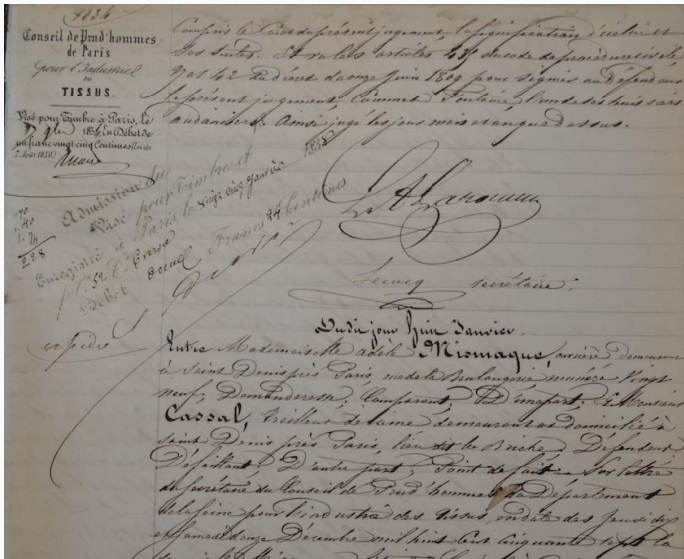 Conseil de Prud'hommes
de Paris
pour l'Industrie
DES
TISSUS.
Visé pour Timbre à Paris, le
185 En Débet de
un franc vingt-cinq Centimes (Loi du
7 Août 1850)
compris le Coût du présent jugement, la signification d'icelui et
ses suites. Et vu les articles 435 du code de procédure civile
et 42 du décret du onze Juin 1809 pour signifier au défendeur
le présent jugement, Commet l'un de ses huissiers
audienciers. Ainsi jugé les jour mois et an que dessus.
Lecucq secrétaire.
Visé pour Timbre et
Enregistré à Paris, le vingt cinq Janvier 1858
Débet Francs 24 Centimes
70
1. 40
2 28
Dudit jour huit Janvier.
expédié
Entre Mademoiselle adèle Mismaque, ouvrière demeurant
à Saint Denis près Paris, rue de la Boulangerie numéro Vingt
neuf, Demanderesse; Comparant; D'une part; Et Monsieur
Cassal, demeurant et domicilié à
Saint Denis près Paris, lieu dit la Briche; Défendeur;
Défaillant; D'autre part; Point de fait = Par lettre
du Secrétaire du Conseil de Prud'hommes du Département
de la Seine pour l'industrie des tissus, en date des jeudi dix
et samedi douze Décembre mil huit cent cinquante sept la